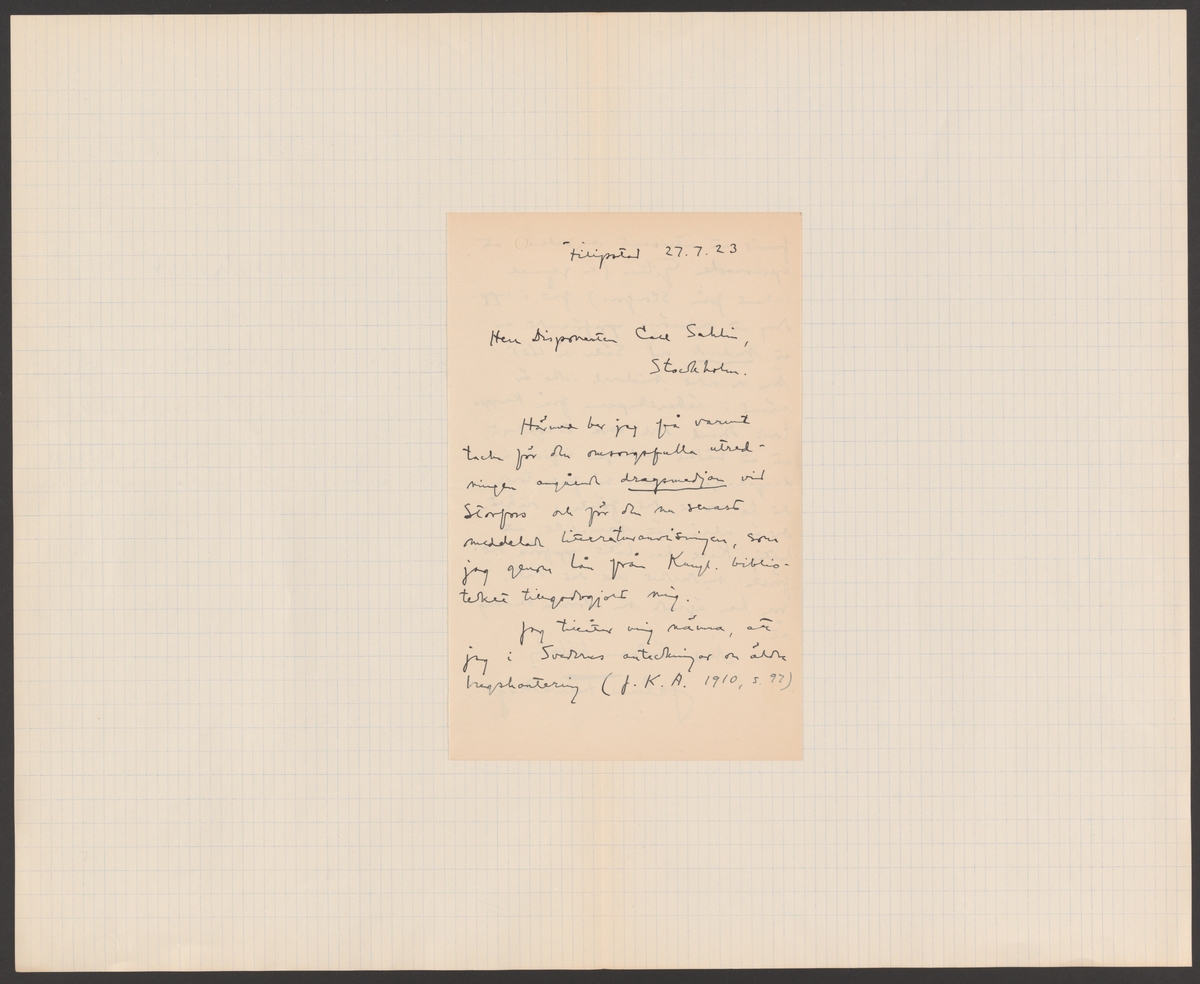 Filipstad 27.7.23
Herr Disponenten Carl Sahlin,
Stockholm.
Härmed ber jag få varmt
tacka för den omsorgsfulla utred-
ningen angående dragsmedjan vid
Storfors och för den nu senast
meddelade litteraturanvisningen, som
jag genom lån från Kungl. biblio-
teket tillgodogjort mig.
Jag tillåter mig nämna, att
jag i Svedernus anteckningar om äldre
bergshantering (J. K. A. 1910, s. 97)